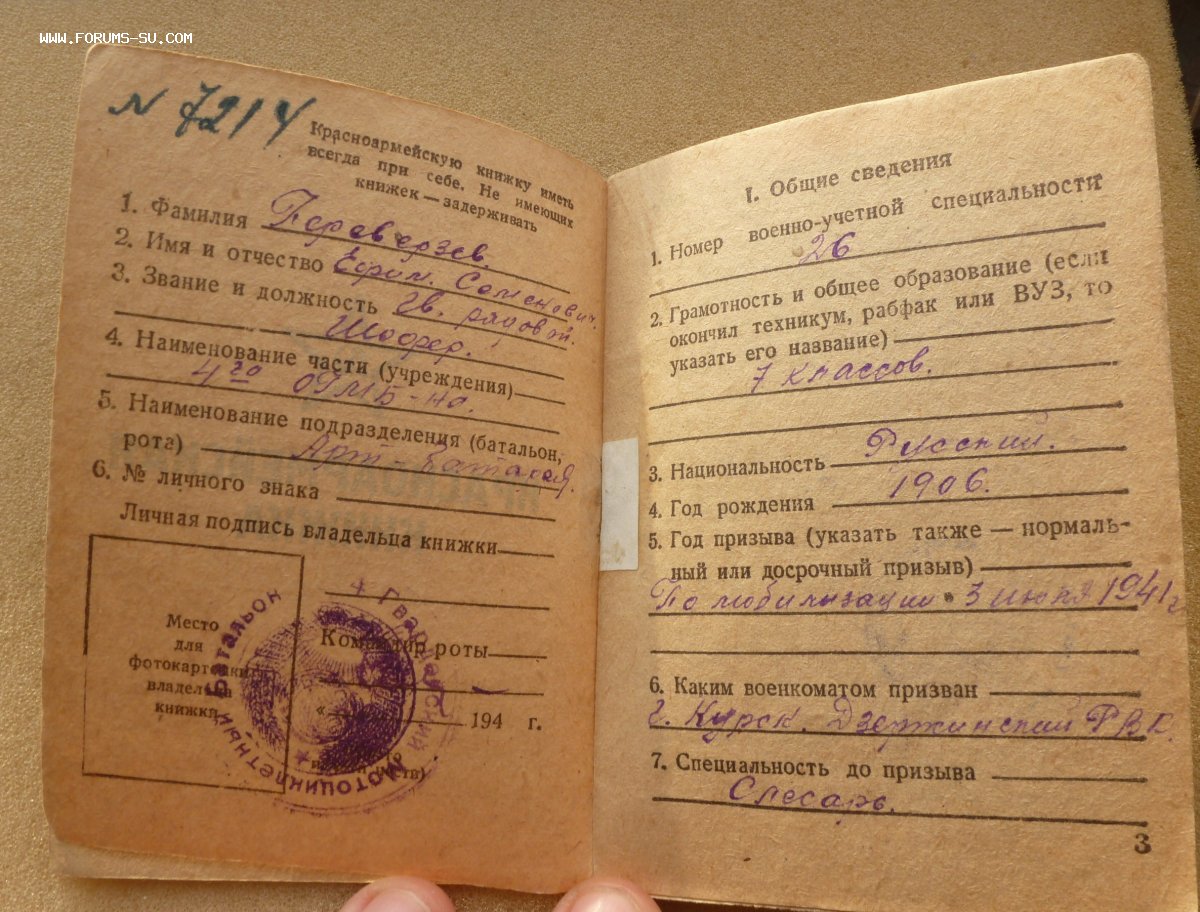 WWW.FORUMS-SU.COM
N 7214
Красноармейскую книжку иметь
всегда при себе. Не имеющих
книжек — задерживать
1. Фамилия Переверзев.
2. Имя и отчество Ефим. Семенович.
3. Звание и должность гв. рядовой.
Шофер.
4. Наименование части (учреждения)
4го ОГМБ-на.
5. Наименование подразделения (батальон,
рота) Арт-Батарея.
6. № личного знака
Личная подпись владельца книжки
Место
для
фотокарточки
владельца
книжки
Командир роты
« 194 г.
Гвардейский
Мотоциклетный Батальон
I. Общие сведения
1. Номер военно-учетной специальности
26
2. Грамотность и общее образование (если
окончил техникум, рабфак или ВУЗ, то
указать его название)
7 классов.
3. Национальность Русский.
4. Год рождения 1906.
5. Год призыва (указать также — нормаль-
ный или досрочный призыв)
По мобилизации 3 июля 1941 г
6. Каким военкоматом призван
г. Курск. Дзержинский РВК.
7. Специальность до призыва
Слесарь.
3